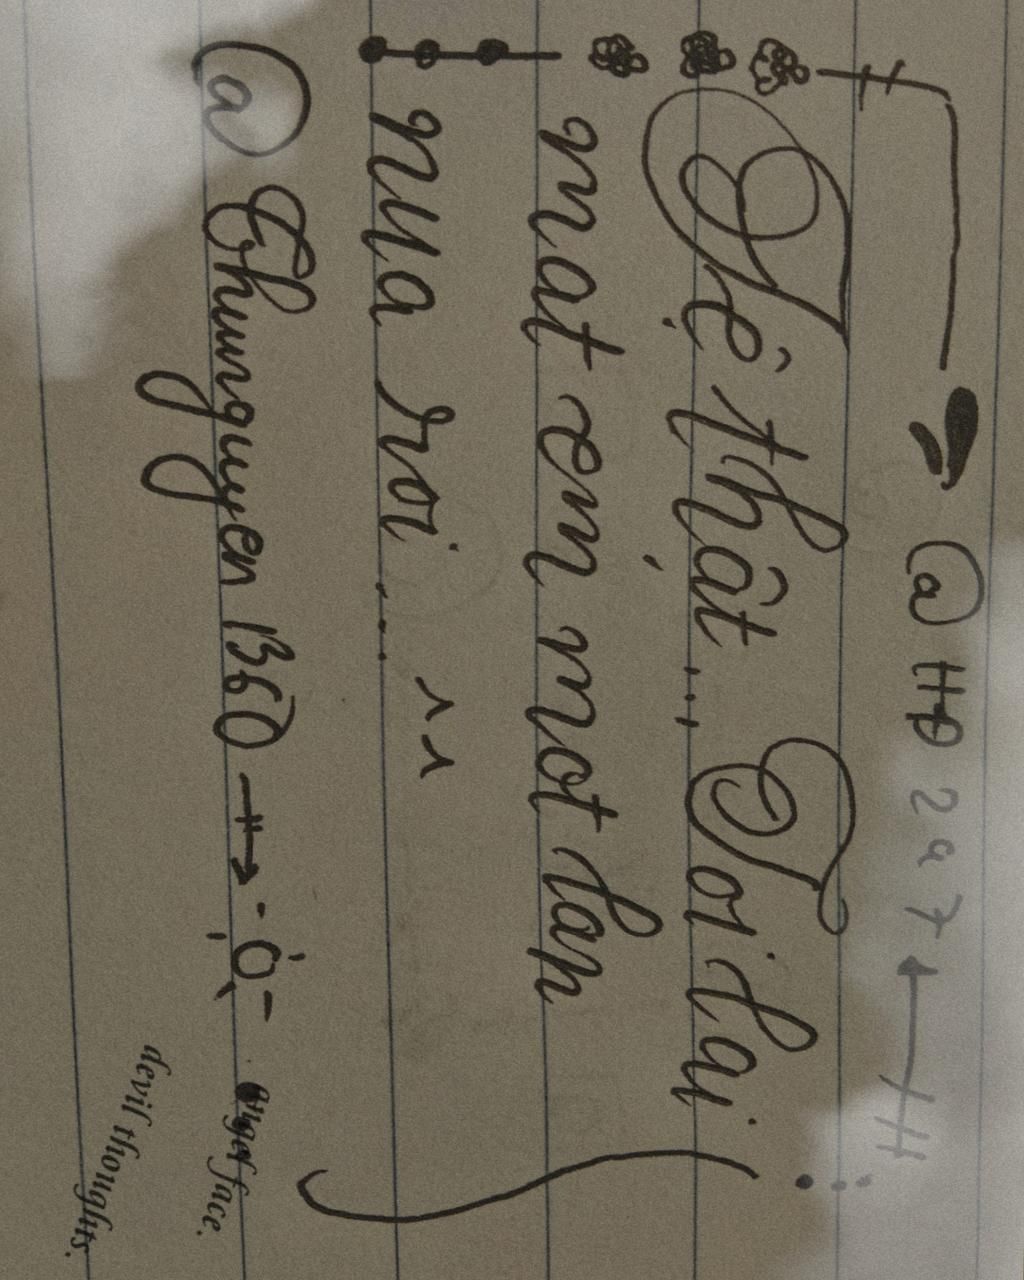 @ HĐ 2 a 7
Tệ thật... Tôi lai
mat em mot lan
nua roi ...
@ Thunguyen 1360
angel face.
devil thoughts.